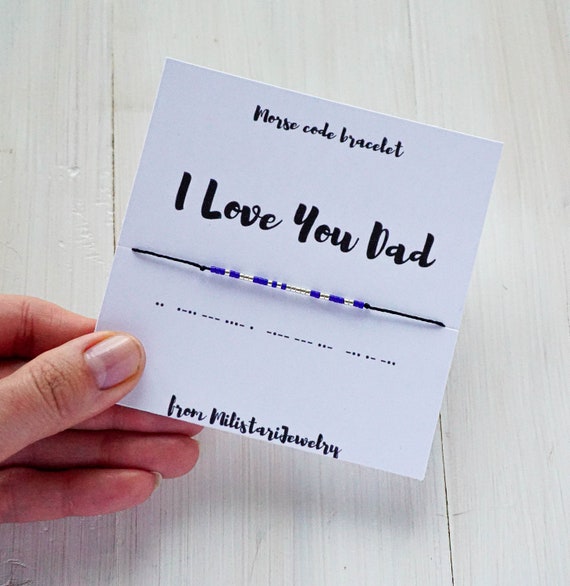 Morse code bracelet
I Love You Dad
.. .-.. --- ...- . -.-- --- ..- -.. .- -..
from MilistariJewelry